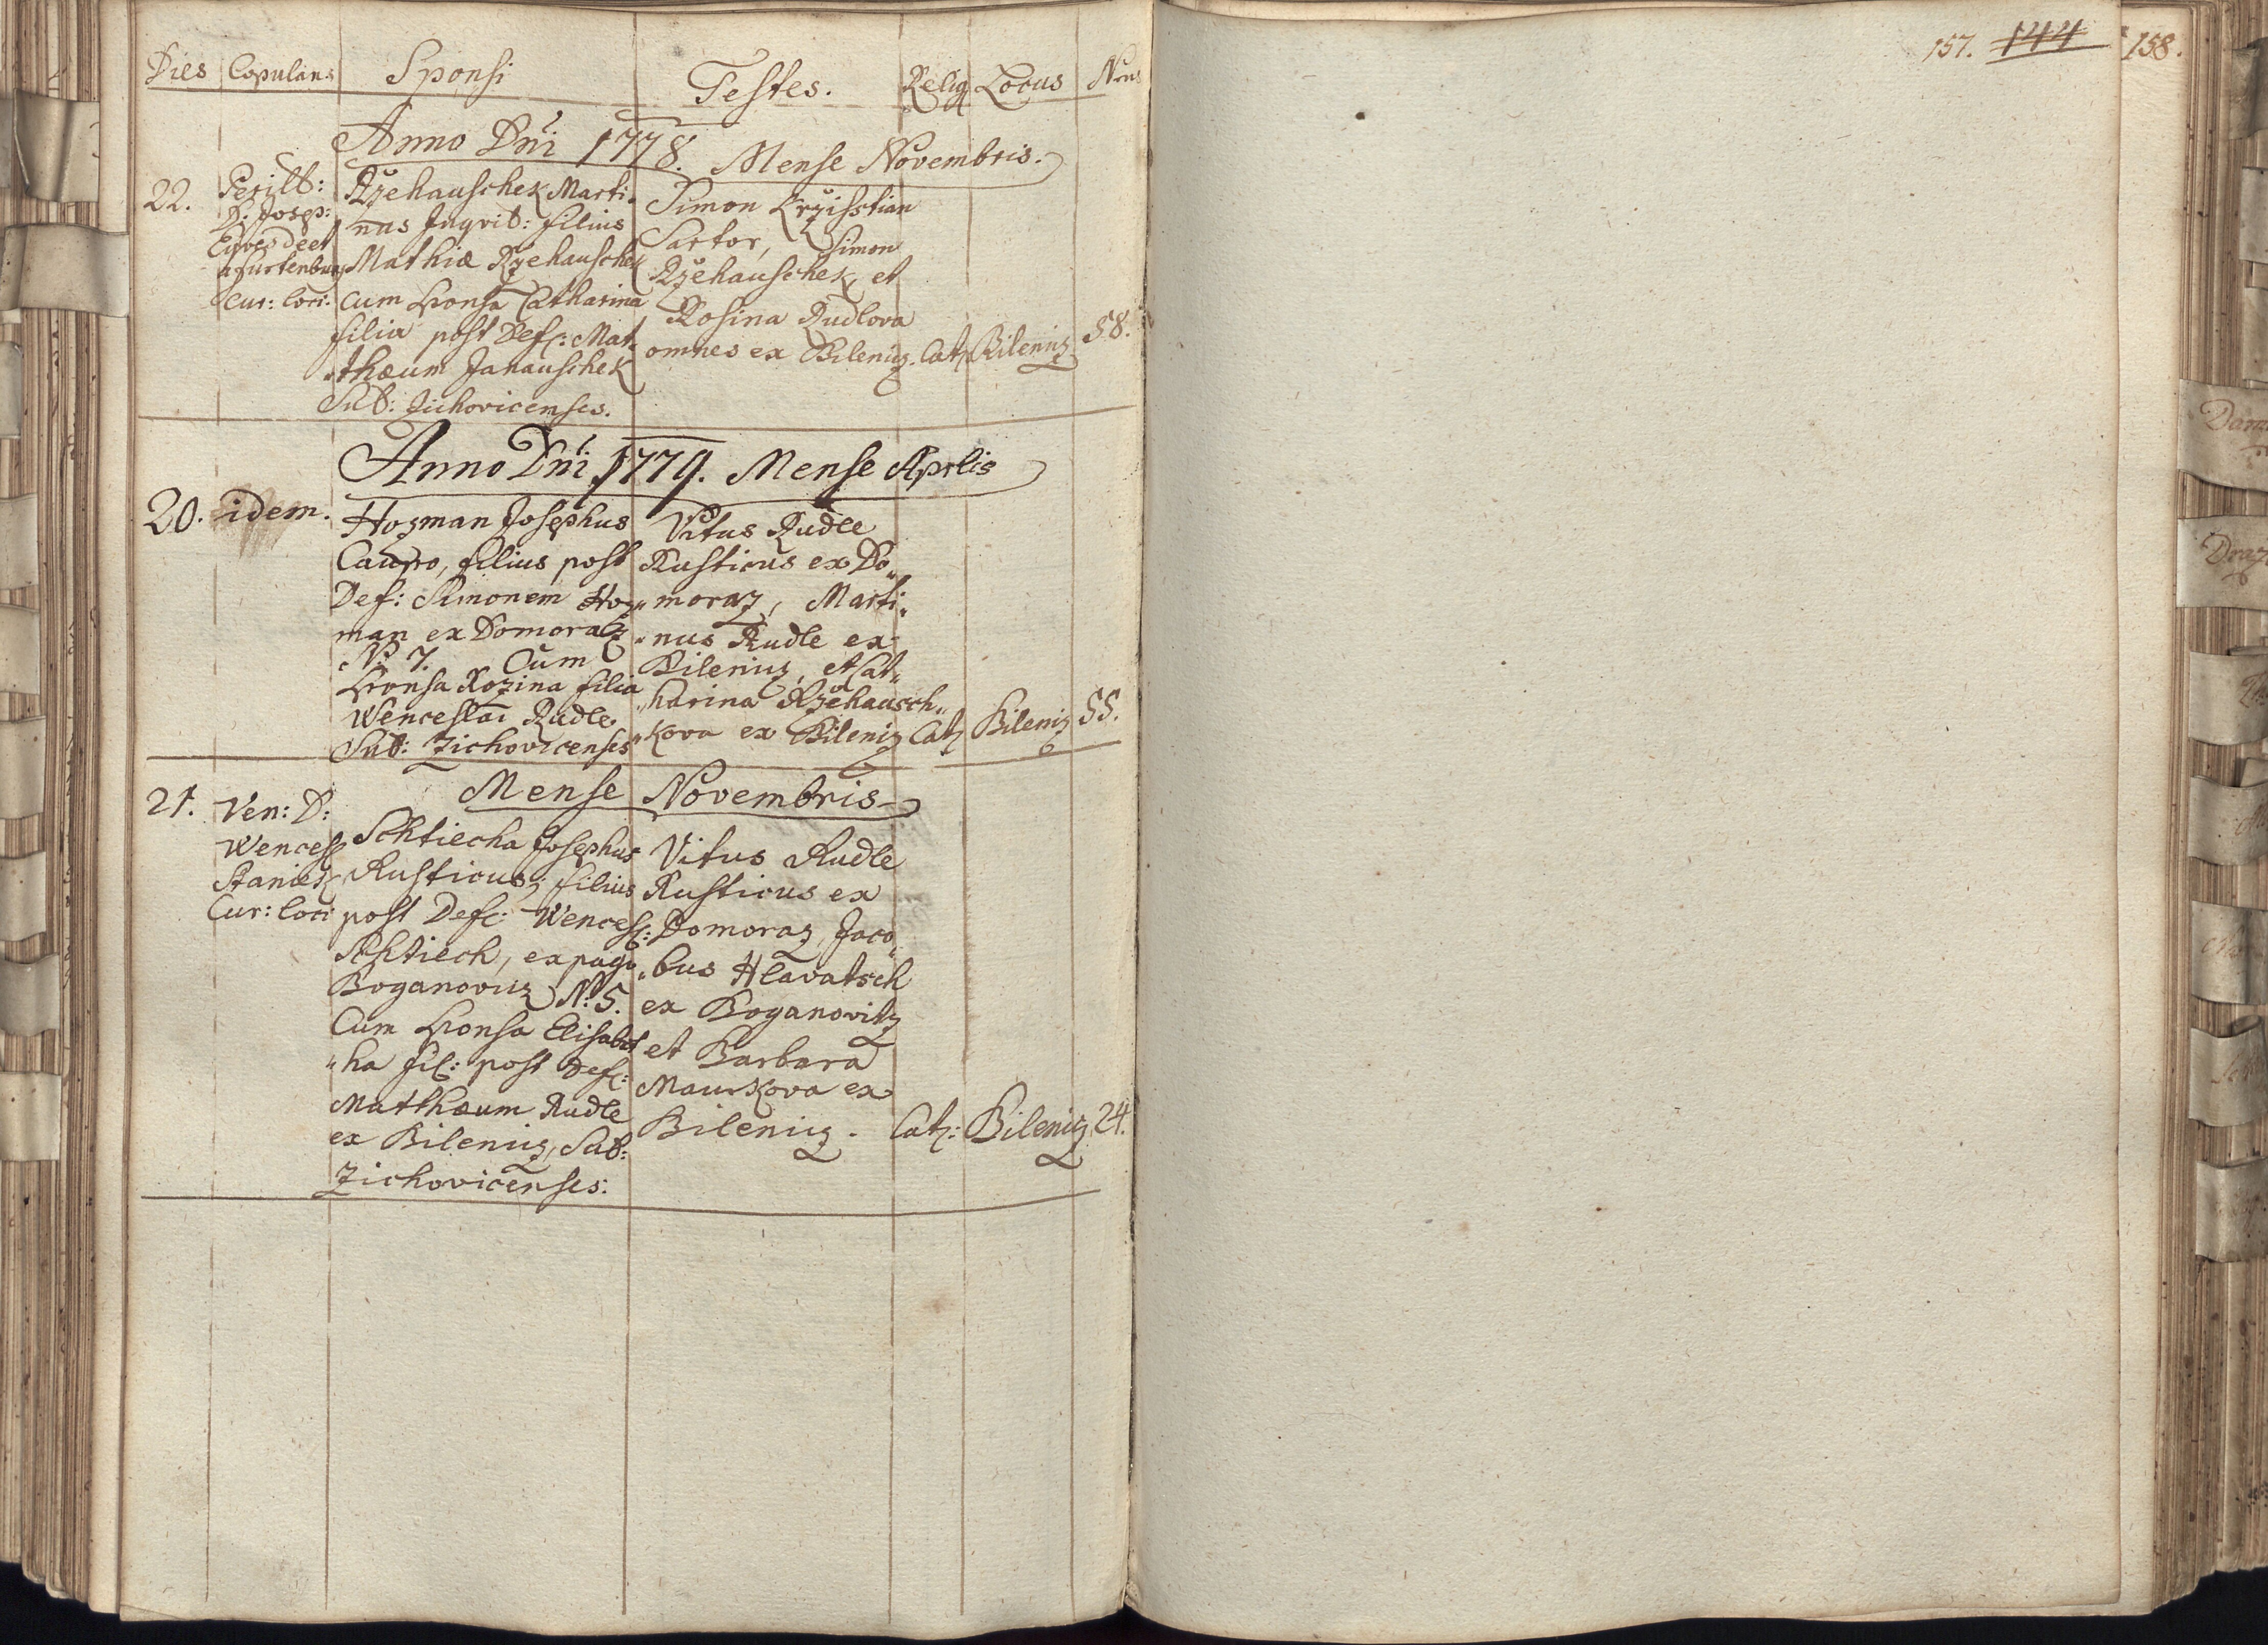 Dies Copulans Sponsi Testes. Relig Locus Nrus
Anno Dni 1778. Mense Novembris.
22.
Perill:
D: Josep:
a furtenburg
Cur: loci.
Rzehauschek Marti-
nus Inqvil: filius
Mathiæ Rzehauschek
cum Sponsa Catharina
filia post Def: Mat,,
,,thæum Janauschek
Sub: Zichovicenses.
Simon Krzisstian
Sartor, Simon
Rzehauschek, et
Rosina Rudlova
omnes ex Bileniz. Cat: Bileniz 58.
Anno Dni 1779. Mense Aprlis
20. idem.
Hozman Josephus
Caupo, filius post
Def: Simonem Hoz,,
man ex Domoraz
N: 7. Cum
Sponsa Rozina filia
Wenceslai Rudle.
Sub: Zichovicenses
Vitus Rudle
Rusticus ex Do,,
,,moraz, Marti,,
,,nus Rudle ex
Bileniz, et Cat,,
,,harina Rzehausch,,
,,kova ex Bileniz Cat: Bileniz 55.
Mense Novembris
21. Ven: D:
Wencesl
Staniek
Cur: loci
Schtiecha Josephus
Rusticus, filius
post Def: Wencesl:
Schtiech, ex pago
Boganoviz N: 5.
Cum Sponsa Elisabet
,,ha fil: post Def:
Matthæum Rudle
ex Bileniz, Sub:
Zichovicenses:
Vitus Rudle
Rusticus ex
Domoraz, Jaco,,
,,bus Hlavatsch
ex Boganovitz
et Barbara
Maurkova ex
Bileniz. Cat: Bileniz 24.
157. 144 158.